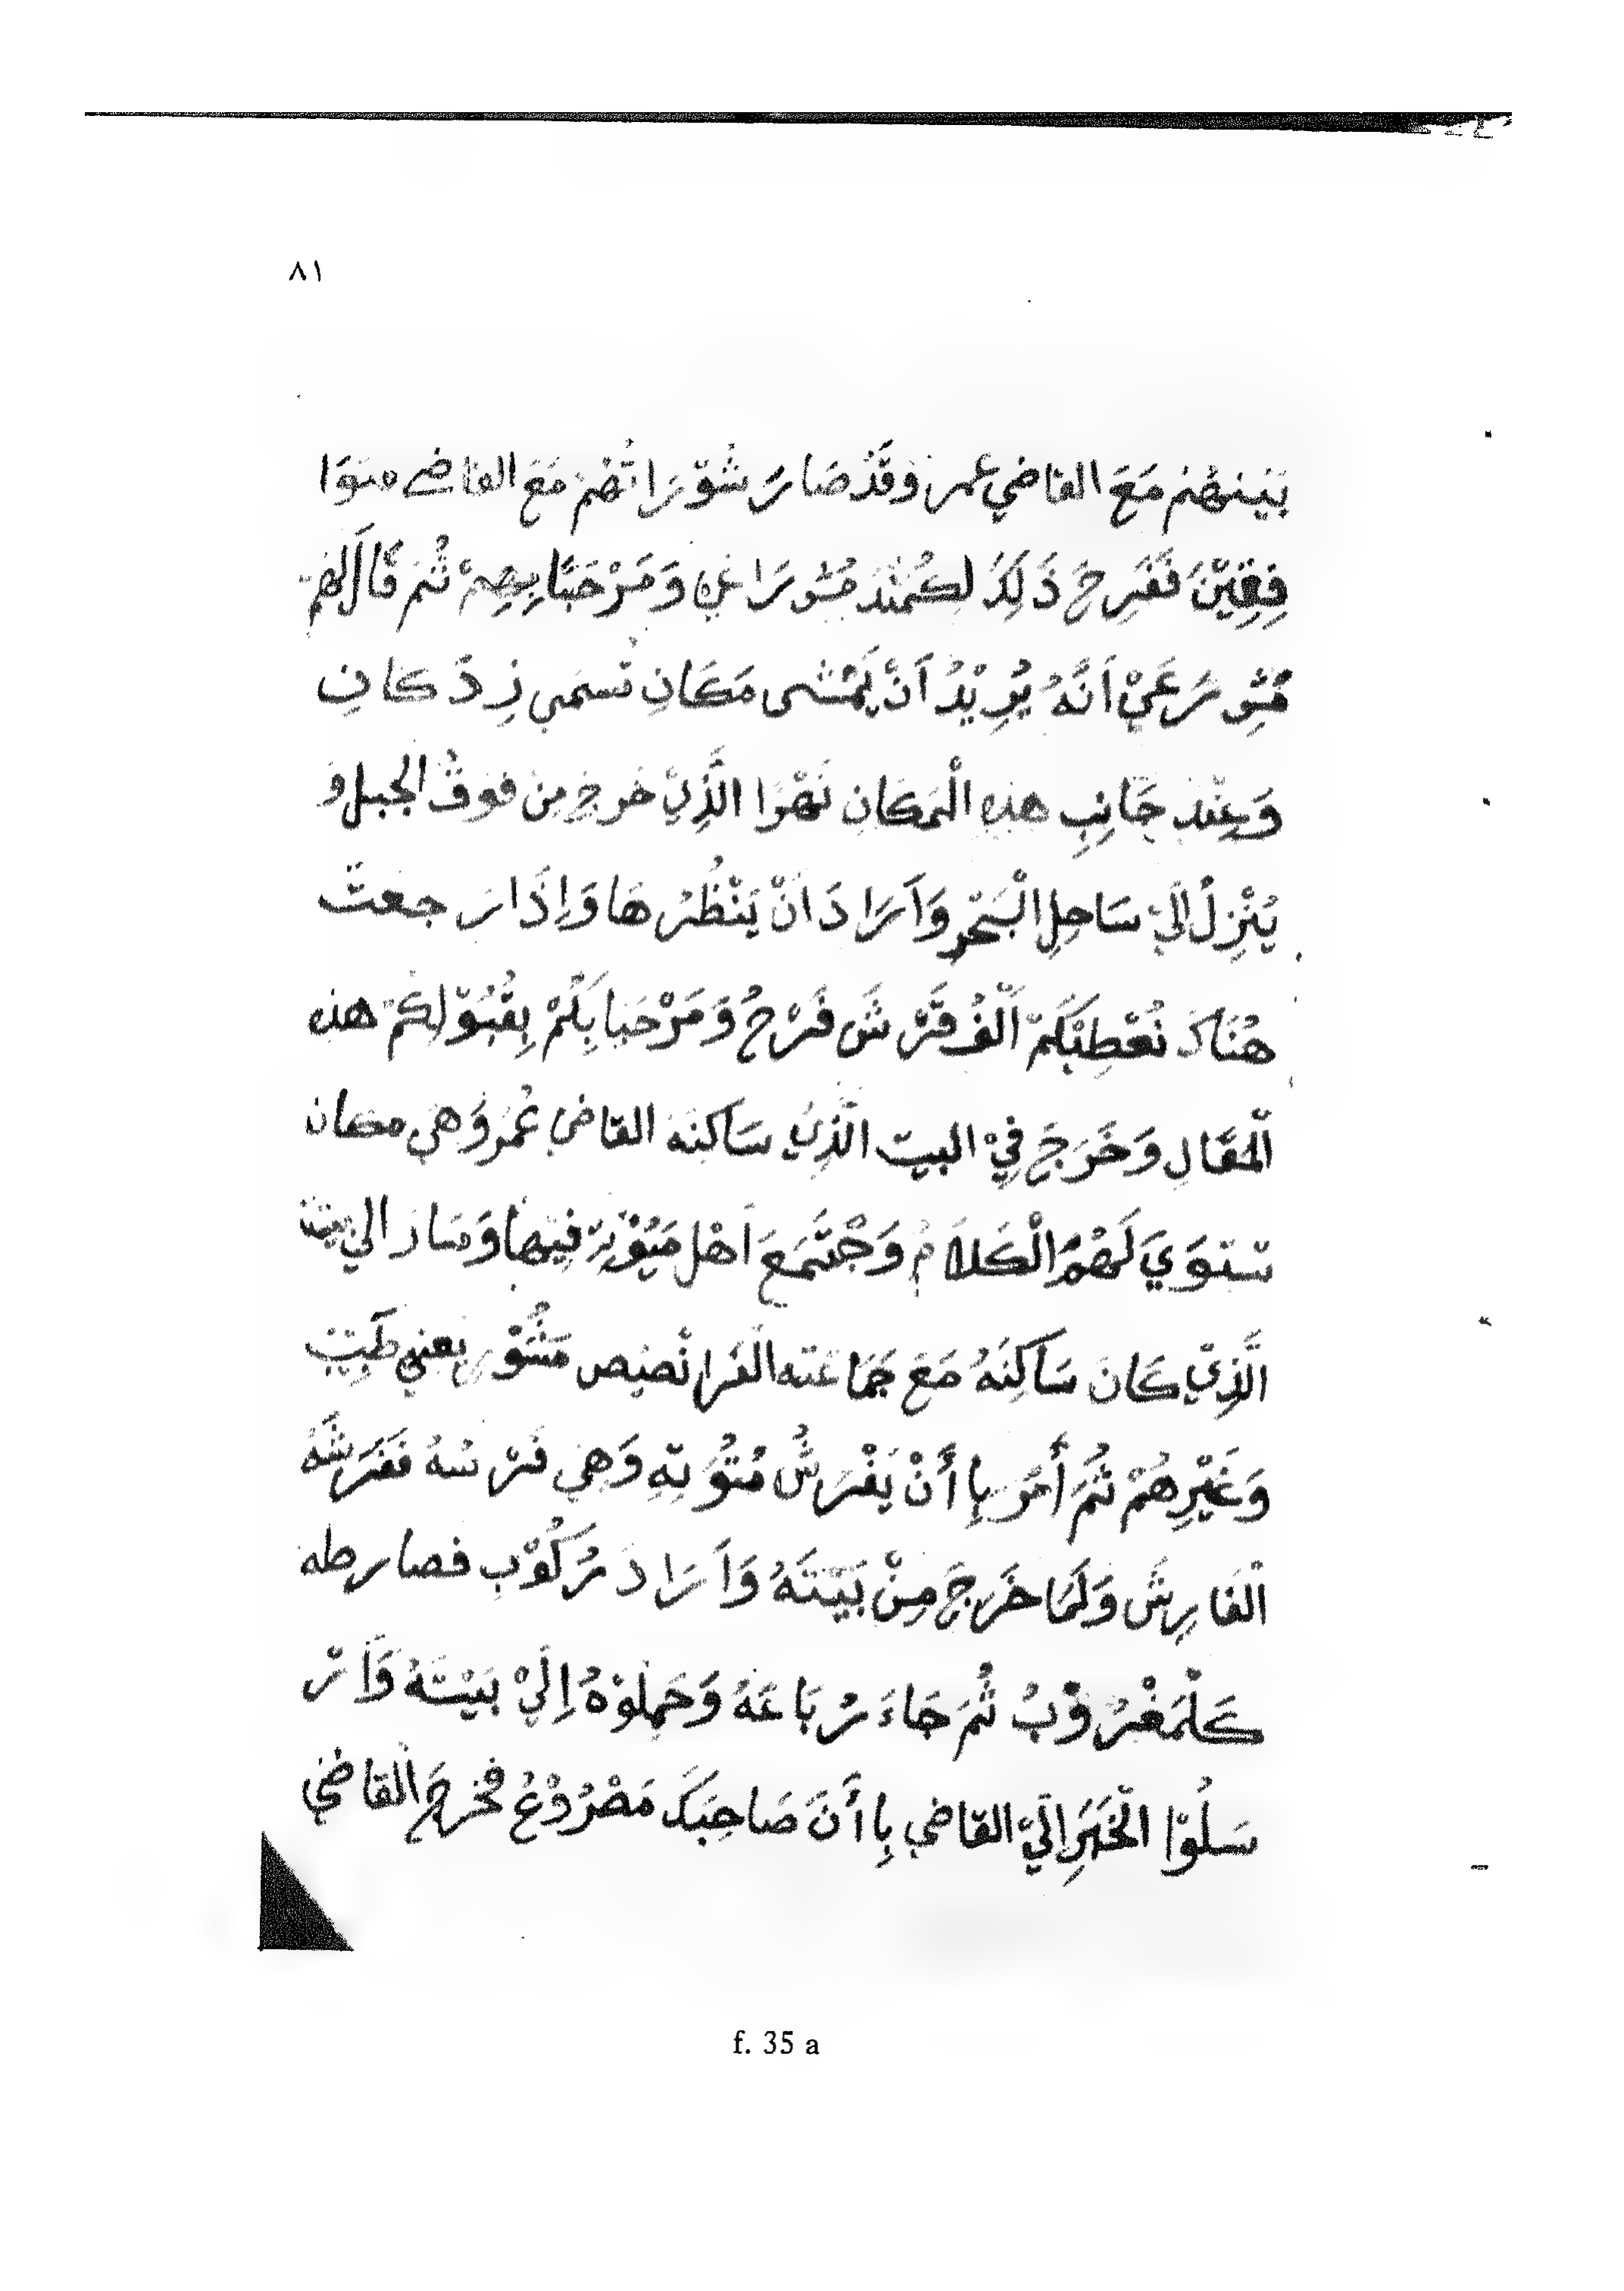 ٨١
بَيْنَهُمْ مَعَ القاضي عمر وَقَدْ صَارَ شُوْرَاتُهُمْ مَعَ القاضي متوَا
فِقِيْنَ فَفَرِحَ ذَلِكَ لكُمَنْدَ مُشُوِرَاغِي وَمَرْحَبًا بِهِمْ ثُمَ قَالَ لَهُمْ
مُشِوِرَغَيْ اَنَّهُ يُرِيْدُ اَنْ يَمْشى مَكَانِ تُسمَى زِدَكانِ
وَعِنْدَ جَانِبِ هذه الْمَكَانِ نَهْرَا الَّذِيْ خَرج مِن فوقُ الجبل وَ
يُنْزِلُ اَلَيْ سَاحِلِ الْبَحْرِ وَاَرَادَ اَنْ يَنْظُرُهَا وَاِذَا رَجعتَ
هُنَاكَ نُعْطِيْكُمْ اَلْفُ قَرْشَ فَرْحُ وَمَرْحَبا بِكُمْ بِقُبُوْلِكُمْ هذه
اَلْمَقَالِ وَخَرَجَ فِيْ البيت الَّذِيْ سَاكِنَهُ القاضي عُمَرُ وَهي مكان
تستوَيَ لَهُمُ الْكَلَامُ وَجْتَمَعَ اَهْل مَيُوْتِهِ فيها وَسَارَ الي بيته
الَّذِيْ كَانَ سَاكِنَهُ مَعَ جَمَاعَته الفَرانْصِيص مَشُوْرِ يعني طَبِيْب
وَغَيْرِهُمْ ثُمَّ أَمَرَ بِاأَنْ يَفْرَشُ مُتُوَتِهِ وَهِي فَرْسُهُ فَفَرَشَهُ
اَلْفَارِشَ وَلَمَا خَرَجَ مِنْ بَيْتَهُ وَاَرَادَ رُكُوْبِ فصار طه
كَلْمَغْرُوْبُ ثُمَ جَاءَ رُبَاعَهُ وَحَمِلُوْهُ اِلَيْ بَيْتَهُ وَاَرْ
سَلُوْا الْخَبَرَ الَيْ القاضي بِاأَنَ صَاحِبَكَ مَصْرُوْعُ فخرجَ القاضي
f. 35 a